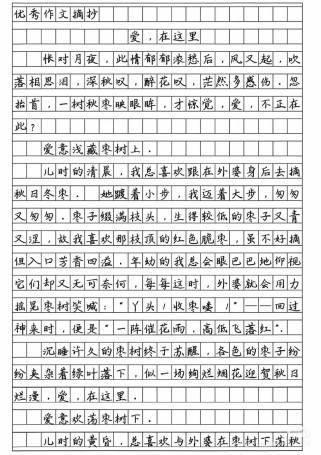 优秀作文摘抄
爱，在这里
怅对月夜，此情郁郁浓愁后，风又起，吹
落相思泪，深秋叹，醉花叹，茫然多感伤。忽
抬首，一树秋枣映眼眸，才惊觉，爱，不正在
此？
爱意浅藏枣树上。
儿时的清晨，我总喜欢跟在外婆身后去摘
秋日冬枣。她踱着小步，我迈着大步，匆匆
又匆匆。枣子缀满枝头，生得较低的枣子又青
又涩，故我喜欢那枝顶的红色脆枣，虽不好摘
但入口芳香四溢。年幼的我总会眼巴巴地仰视
它们却又无可奈何，每每这时，外婆就会用力
摇晃枣树笑喊："丫头！收枣喽！"——回过
神来时，便是"一阵催花雨，高低飞落红"。
沉睡许久的枣树终于苏醒，各色的枣子纷
纷夹杂着绿叶落下，似一场绚烂烟花迎贺秋日
烂漫，爱，在这里。
爱意欢荡枣树下。
儿时的黄昏，总喜欢与外婆在枣树下荡秋